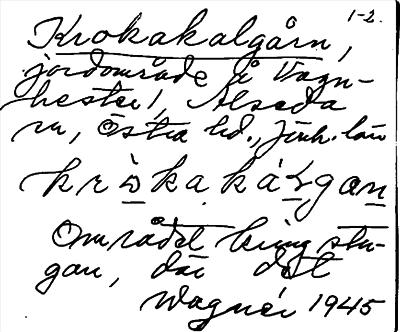 1-2.
Krokakalgårn,
jordområde å Vagn-
hester, Alseda
sn, Östra hd., Jönk. län
kròkakálgan
Området kring stu-
gan, där det
Wagnér 1945